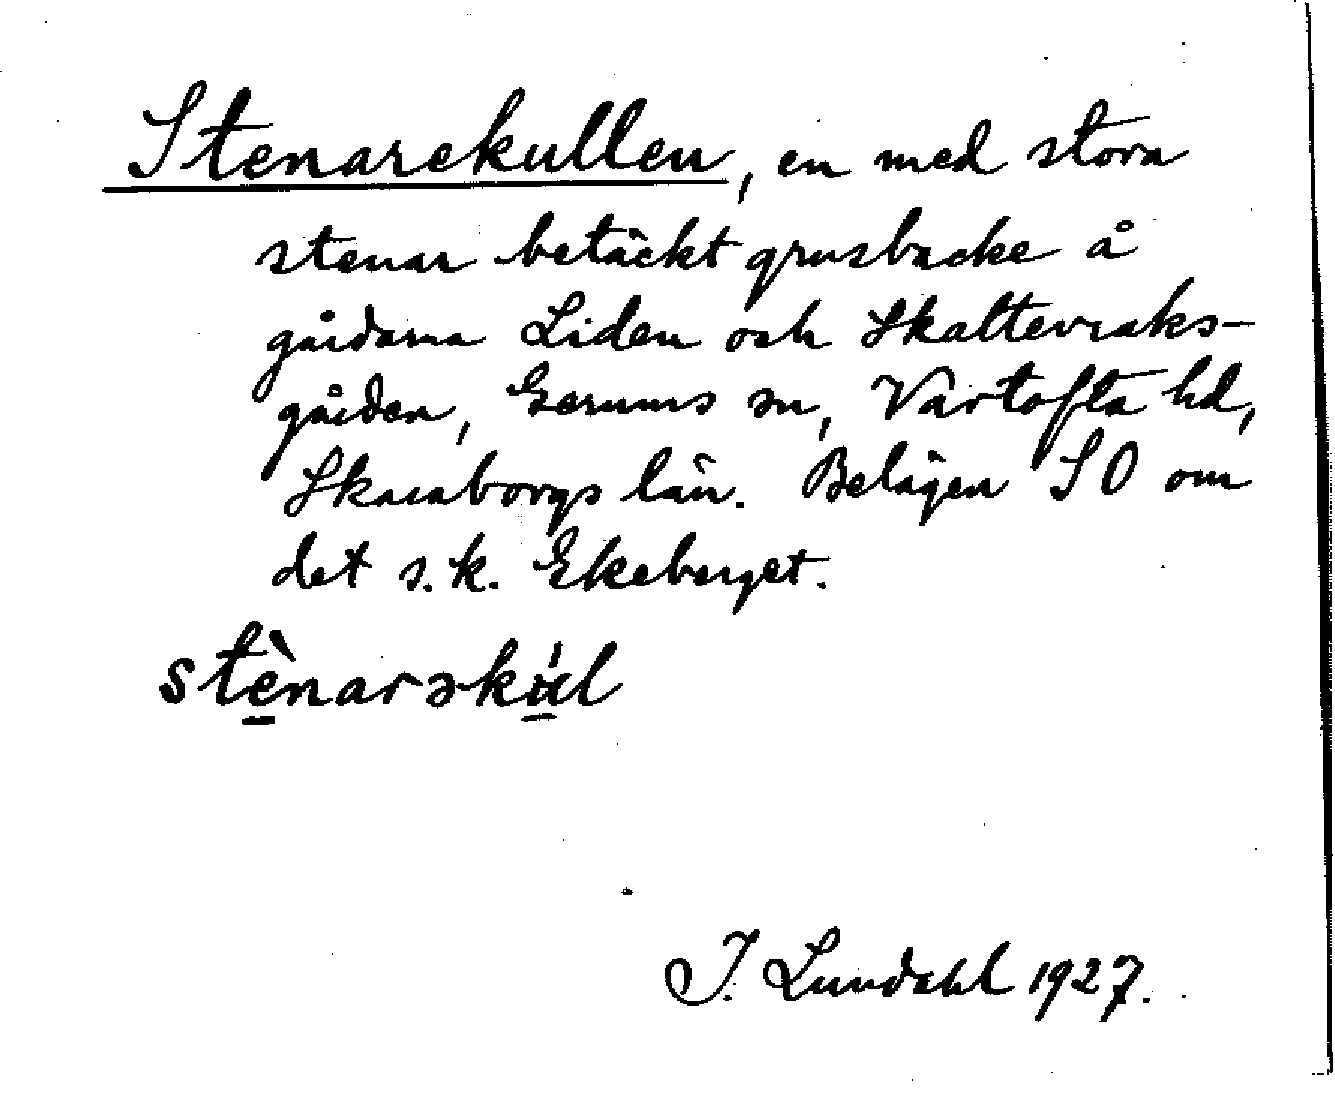 Stenarekullen, en med stora
stenar betäckt grusbacke å
gårdarna Liden och Skattevraks-
gården, Gerums sn, Vartofta hd,
Skaraborgs län. Belägen SO om
det s.k. Ekeberget.
J. Lundahl 1927.